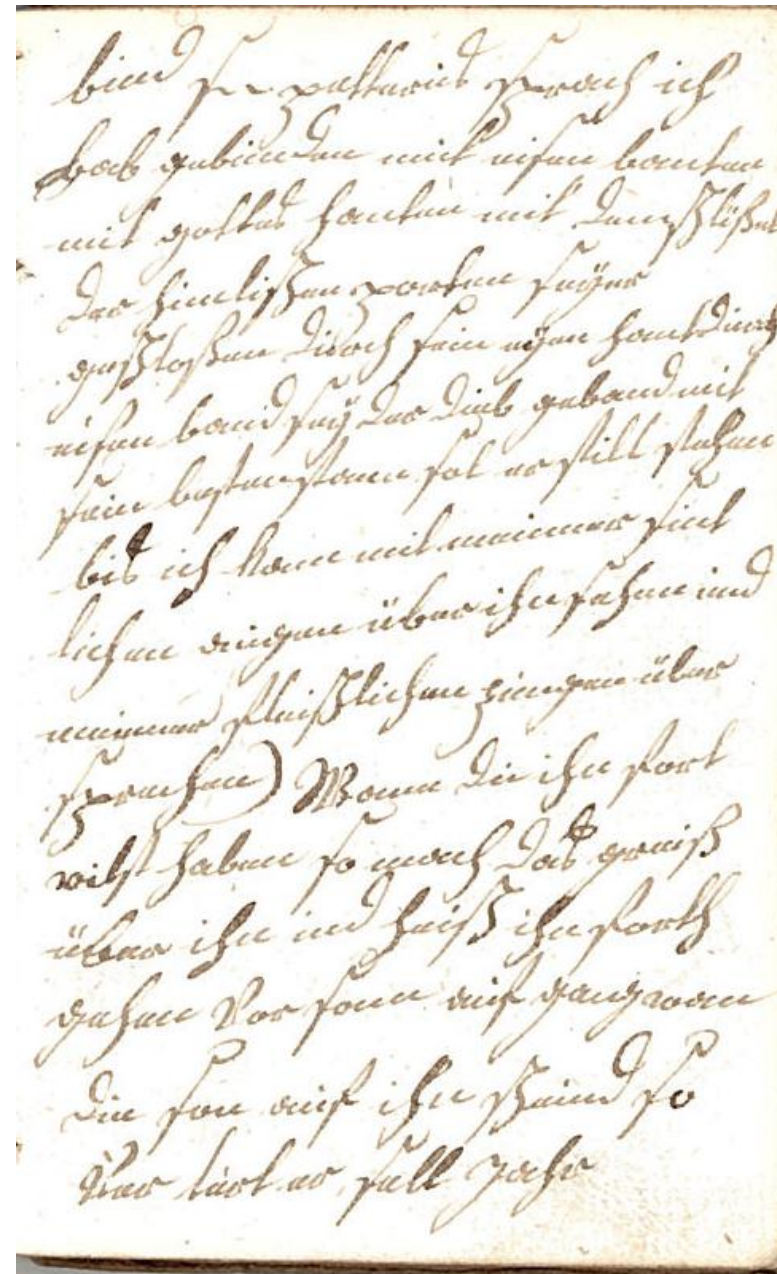 bind s pettrus sprach ich
hab gebunden mit eisen banten
mit gottes hanten mit dem schlißel
der himlischen porten seyer
geschloßen durch sein eÿen hant durch
eisen band seÿ der dieb geband mit
sein besten stam sol er still stehen
bis ich kom mit meinner sint
lichen augen über ihn sehen und
meinner fleischlichen zungen über
sprechen) Wann du ihn fort
wilst haben so mach das greitz
über ihn und heiß ihn forth
gehen Vor sonn auf gang wan
die son auf ihn scheind so
Ver liert er sell Jahr